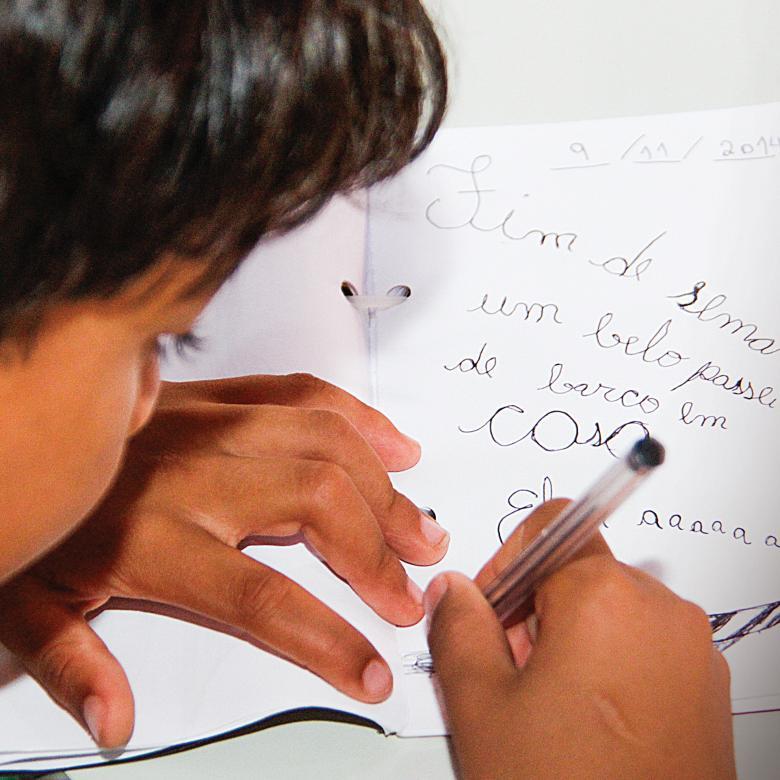 9/11/2014
Fim de sema
um belo passei
de barco em
casa
aaaaa a